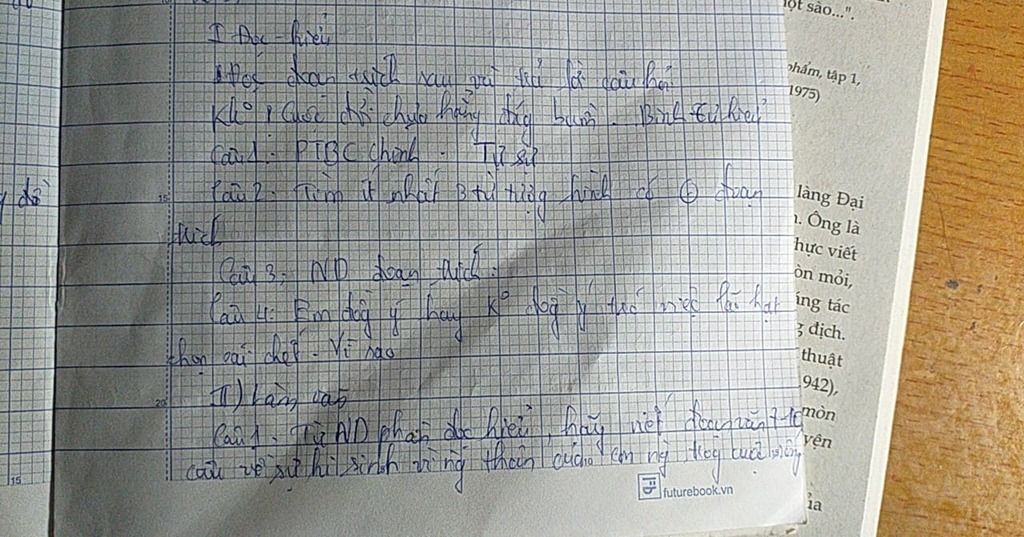 I Đọc - hiểu
1. Đọc đoạn trích sau và trả lời câu hỏi
K° ! Cuộc đời chưa hẳn đáng buồn - Binh Tư hiểu
Câu 1. PTBĐ chính. Tự sự
Câu 2. Tìm ít nhất 3 từ tượng hình có đoạn
trích
Câu 3, ND đoạn trích.
Câu 4: Em đồg ý hay K° đồg ý việc lão hạc
chọn cái chết - Vì sao
II) Làm văn
Câu 1. Từ ND phần đọc hiểu, hãy viết đoạn văn 7-10
câu về sự hi sinh vì ng thân của con ng trog cuộc sống
15
20
15
futurebook.vn
một sào...".
phẩm, tập 1,
1975)
làng Đại
Ông là
hực viết
òn mỏi,
áng tác
g dịch.
thuật
942),
mòn
yện
ủa